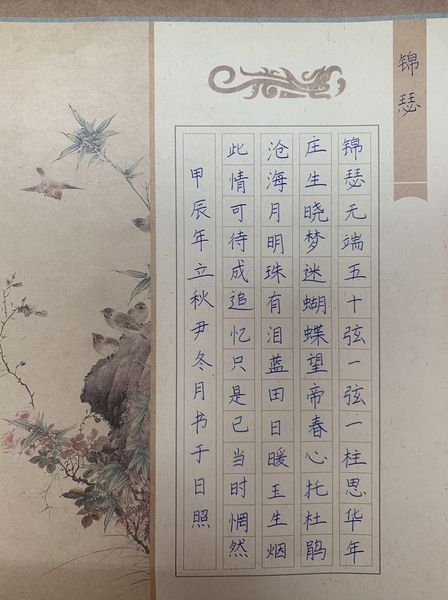 锦瑟
锦瑟无端五十弦一弦一柱思华年
庄生晓梦迷蝴蝶望帝春心托杜鹃
沧海月明珠有泪蓝田日暖玉生烟
此情可待成追忆只是已当时惘然
甲辰年立秋尹冬月书于日照